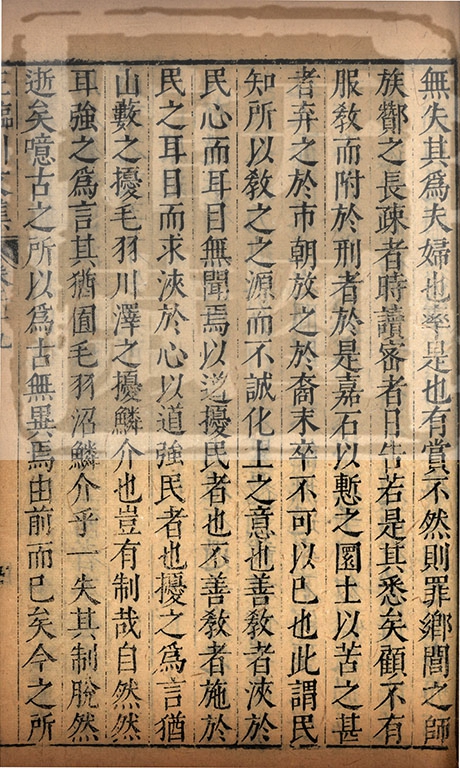 無失其爲夫婦也率是也有賞不然則罪鄉閭之師
族酇之長疎者時讀密者日告若是其悉矣顧不有
服教而附於刑者於是嘉石以慙之圜土以苦之甚
者弃之於市朝放之於裔末卒不可以已也此謂民
知所以教之之源而不誠化上之意也善教者浹於
民心而耳目無聞焉以道擾民者也不善教者施於
民之耳目而求浹於心以道強民者也擾之爲言猶
山藪之擾毛羽川澤之擾鱗介也豈有制哉自然然
耳強之爲言其猶囿毛羽沼鱗介乎一失其制脫然
逝矣噫古之所以爲古無異焉由前而已矣今之所